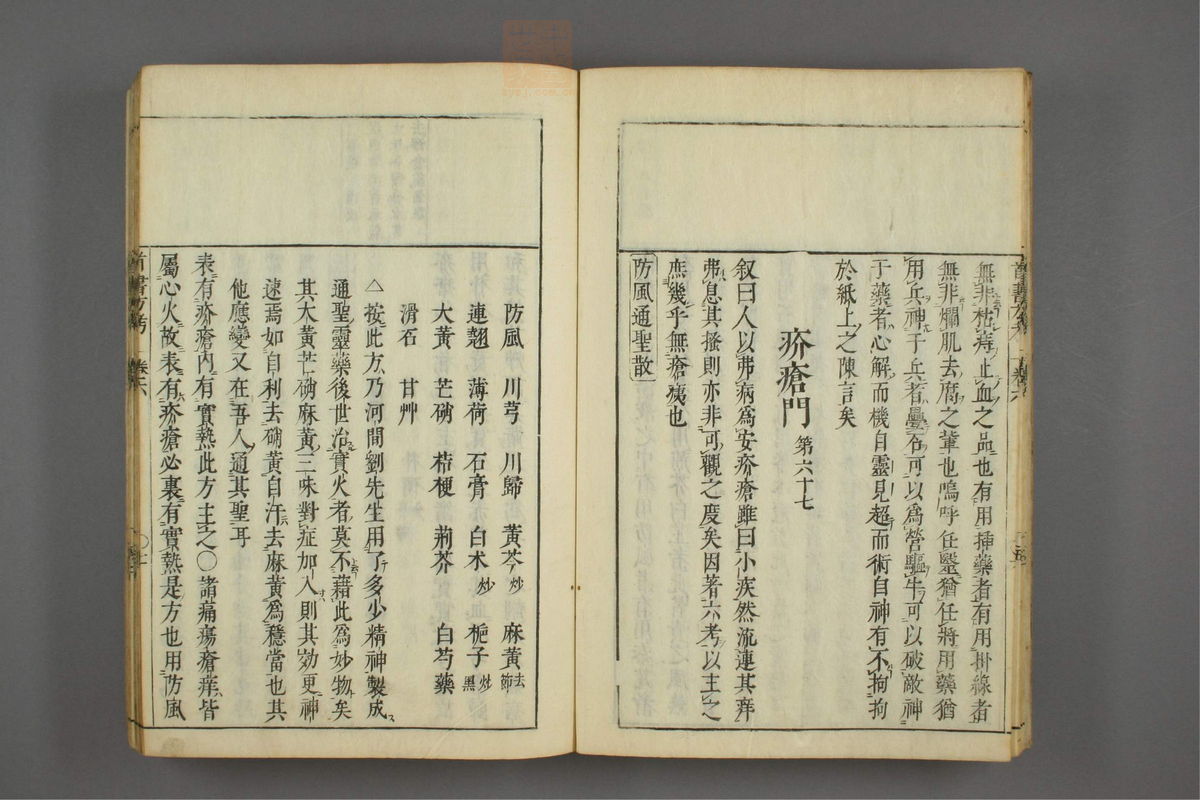 無非枯痔止血之品也有用揷藥者有用掛線者
無非爛肌去腐之輩也嗚呼任毉猶任將用藥猶
用兵神于兵者疊石可以爲營驅牛可以破敵神
于藥者心解而機自靈見超而術自神有不拘拘
於紙上之陳言矣
疥瘡門第六十七
叙曰人以弗病爲安疥瘡雖曰小疾然流連其痒
弗息其搔則亦非可觀之度矣因著六考以主之
庶幾乎無瘡痍也
防風通聖散
防風 川芎 川歸 黃芩炒 麻黃去節
連翹 薄荷 石膏 白朮炒 梔子炒黑
大黃 芒硝 桔梗 荊芥 白芍藥
滑石 甘艸
△按此方乃河間劉先生用了多少精神製成
通聖靈藥後世治實火者莫不藉此爲妙物矣
其大黃芒硝麻黃三味對症加入則其効更神
速焉如自利去硝黃自汗去麻黃爲穩當也其
他應變又在吾人通其聖耳
表有疥瘡內有實熱此方主之〇諸痛瘍瘡痒皆
屬心火故表有疥瘡必裏有實熱是方也用防風
卷六